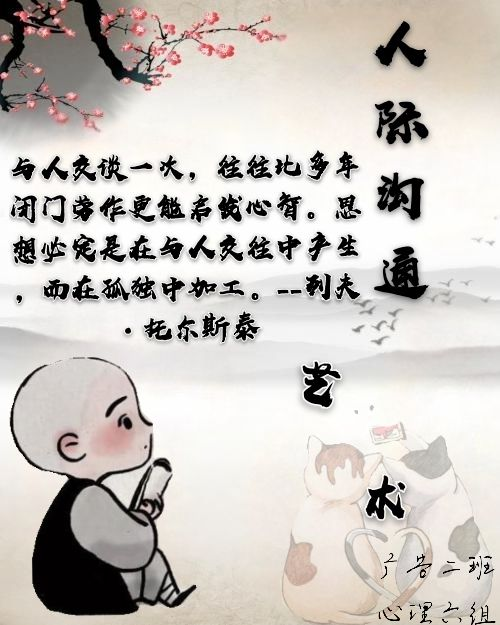 人际沟通
艺
术
与人交谈一次，往往比多年
闭门劳作更能启发心智。思
想必定是在与人交往中产生
，而在孤独中加工。--列夫
·托尔斯泰
广告二班
心理六组